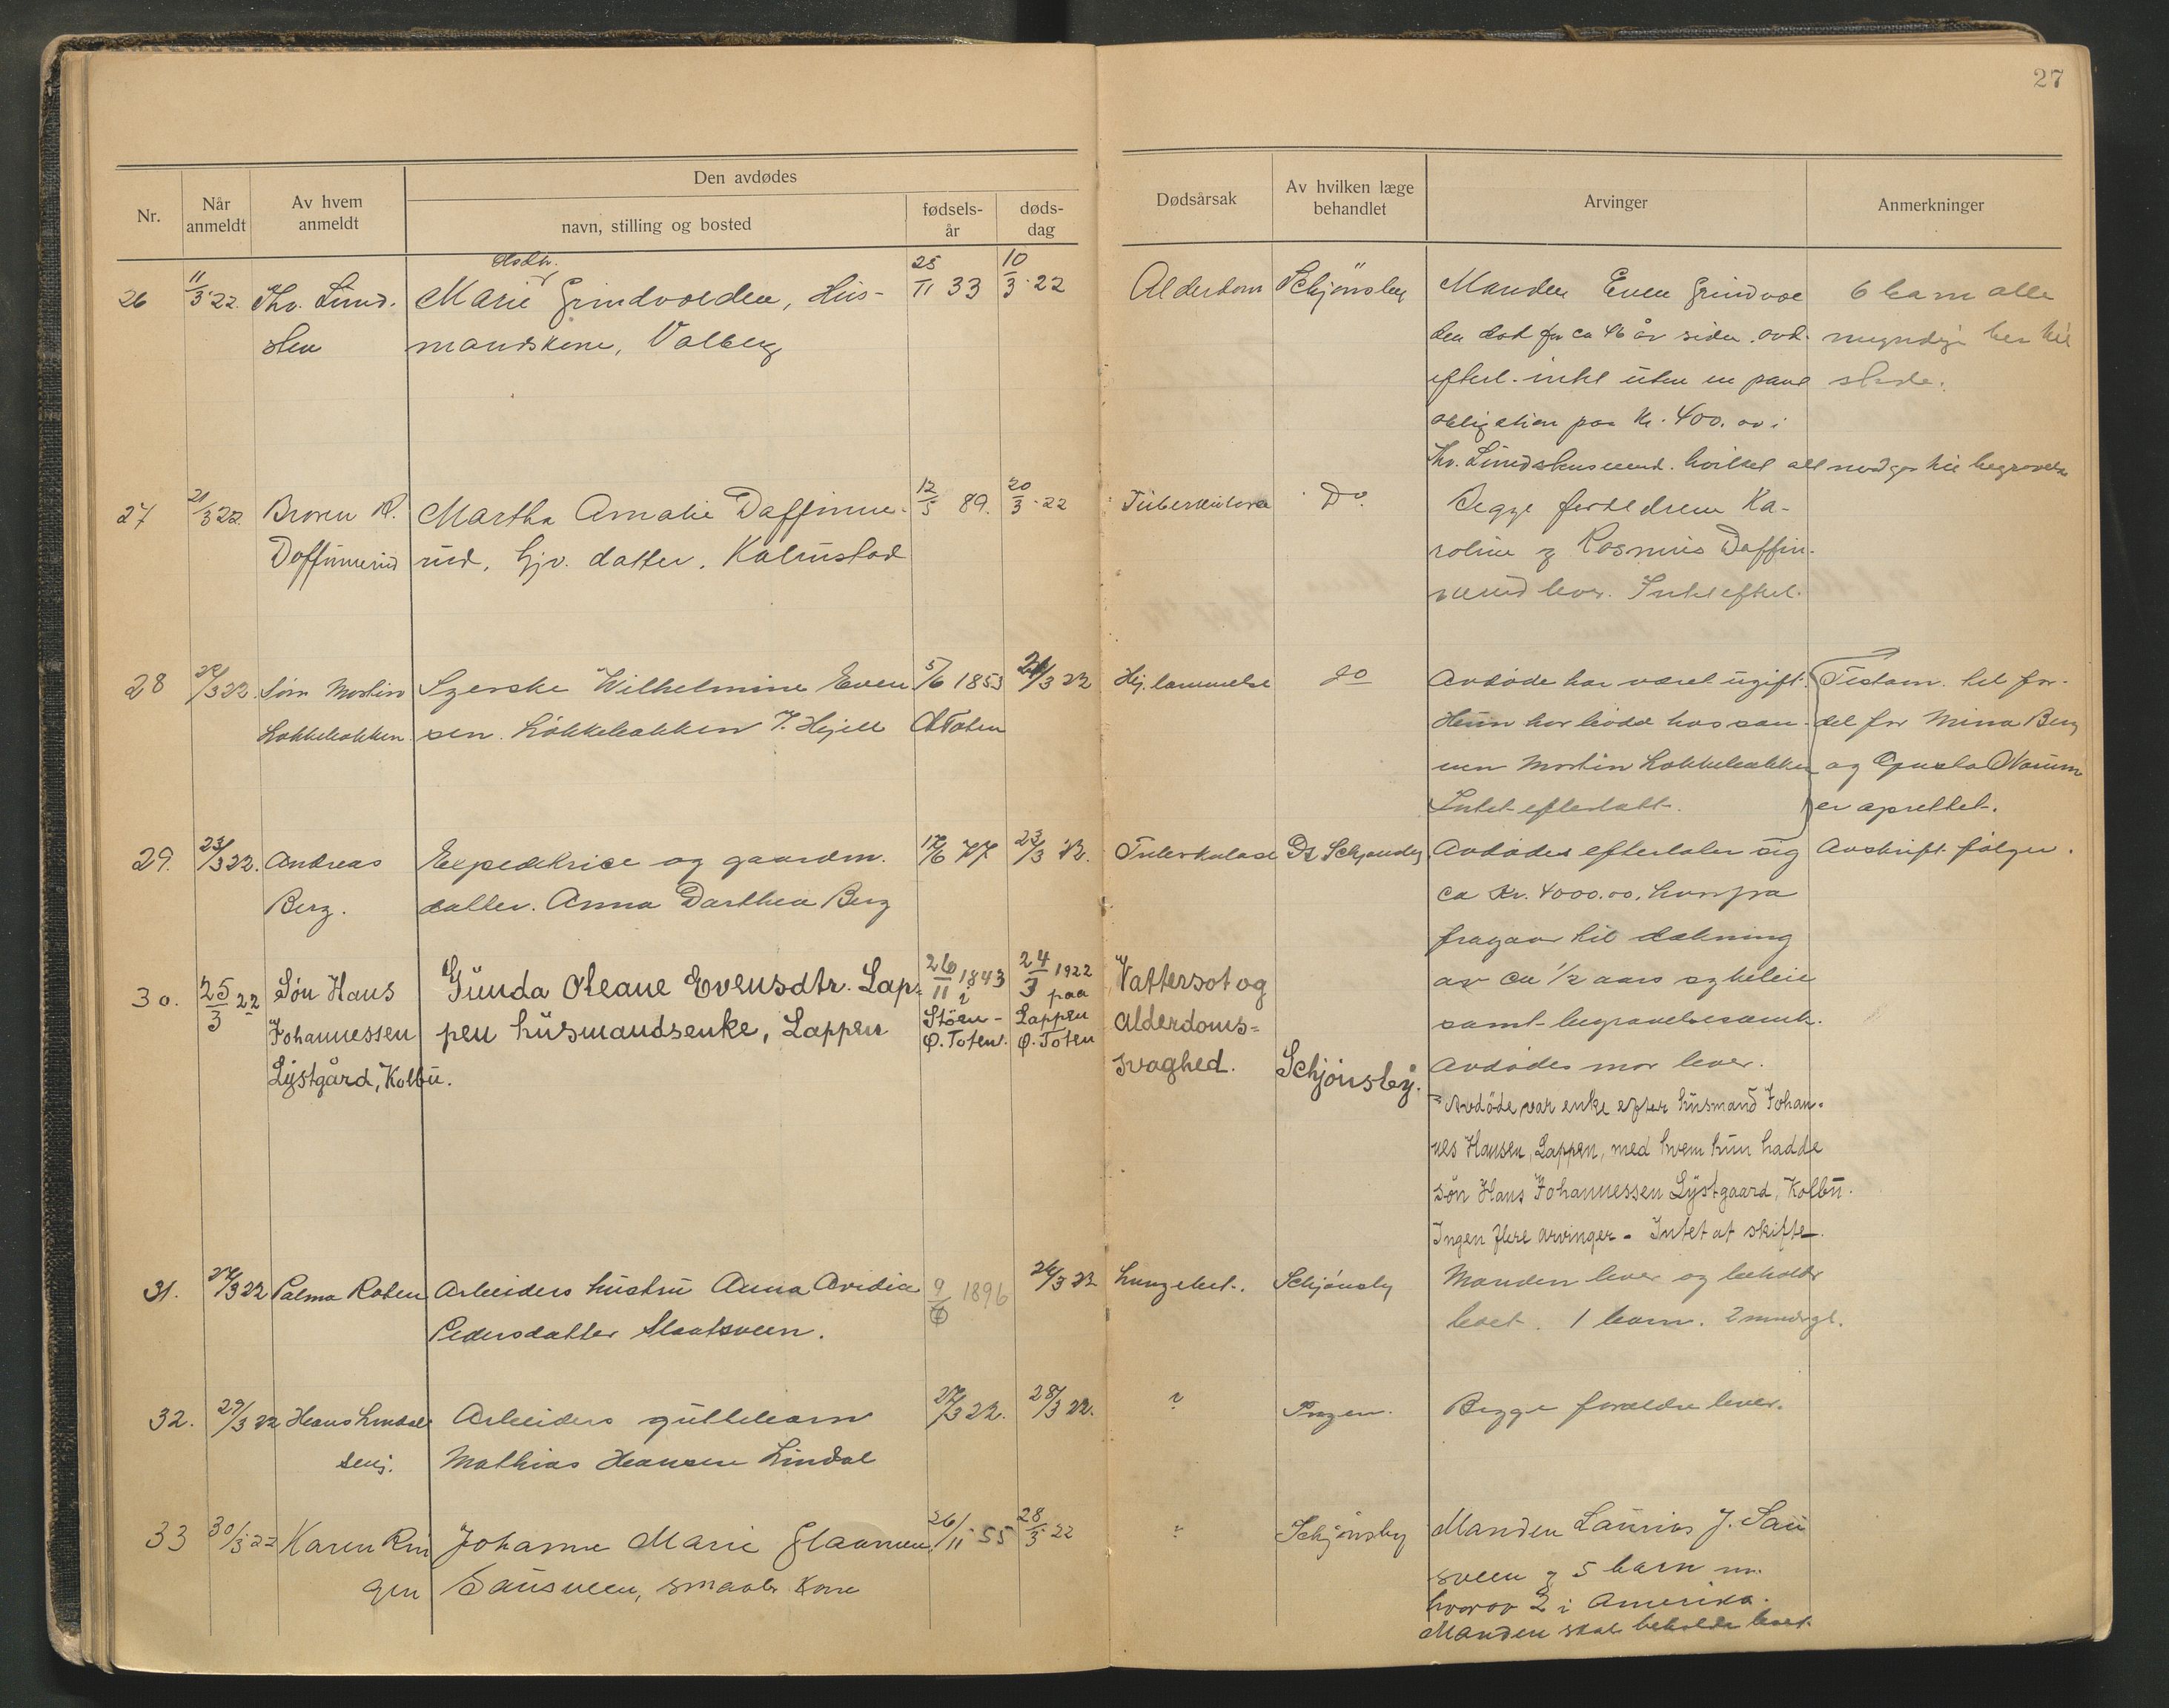 27
Nr.
Når anmeldt
Av hvem anmeldt
Den avdødes
navn, stilling og bosted
fødsels-år
døds-dag
Dødsårsak
Av hvilken læge behandlet
Arvinger
Anmerkninger
26 11/3 22. Thv. Lund. Marie Grindvolden, Hus- 25/11 33 10/3 22 Alderdom Schjønsby Manden Even Grindvol 6 barn alle
mandskone, Valberg den død for ca 46 år siden. avd. myndige her til
efterl. intet uten en pant stede.
obligation paa kr. 400.00 i
hvilket alt medgår til begravelse
27 21/3 22. Broren R. Martha Amalie Daffinne- 12/5 89. 20/3 22 Tuberkulose Do. Begge forældrene Ka-
Doffinnerud rud, hjv. datter. Kalrustad roline og Rasmus Daffin-
rud lever. Intet efterl.
28 22/3 22. Søn Martin Syerske Wilhelmine Even 5/6 1853 21/3 22 Hj. lammelse do Avdøde har været ugift. Testam. til for-
Løkkebakken. sen. Løkkebakken V. Hejell Ø Toten Hun har bodd hos søn- del for Mina Berg
nen Martin Løkkebakken og
Intet efterlatt. er oprettet.
29. 23/3 22. Andreas Expeditrice og gaardm. 12/6 77 23/3 22. Tuberkulose Dr Schjønsby Avdødes efterlater sig Avskrift følger.
Berg. datter. Anna Dorthea Berg ca Kr. 4000.00, hvorpra
fragaar til dækning
av ca 1/2 aars sykeleie
samt begravelsesomk.
Avdødes mor lever.
30. 25/3 22 Søn Hans Gunda Oleane Evensdtr. Lap- 26/11 1843 i 24/3 1922 paa Vattersot og
Johannessen pen husmandsenke, Lappen Støen- Ø. Toten. Lappen Ø. Toten alderdoms=
Lystgård, Kolbu. svaghed. Schjønsby.
Avdøde var enke efter husmand Johan-
nes Hansen, Lappen, med hvem hun hadde
søn Hans Johannessen Lystgaard, Kolbu.
Ingen flere arvinger - Intet at skifte.
31. 27/3 22 Palma Roten Arbeiders hustru Anna Avidia 9/6 1896 26/3 22 Lungebet. Schjønsby Manden lever og beholdr
Pedersdatter Slaatsveen. boet. 1 barn. 2 mndrgl.
32. 29/3 22 Hans Lindal Arbeiders guttebarn 27/3 22. 28/3 22. ? Ingen. Begge forældre lever.
senj. Mathias Hansen Lindal
33 30/3 22 Karen Rin Johanne Marie Glaamen, 26/11 55 28/3 22 ? Schjønsby Manden Laurits J. Sau
gen Sausveen, smaabr. kone sveen og 5 barn m.
hvorav 2 i Amerika.
Manden skal beholde boet.